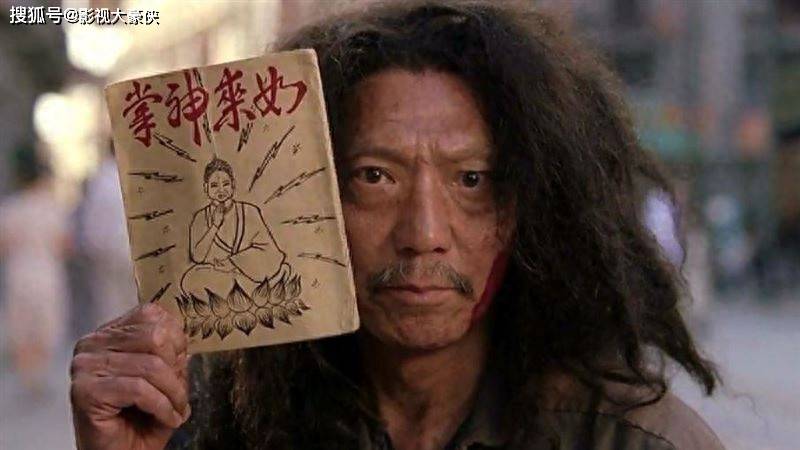 搜狐号@影视大豪侠
如來神掌